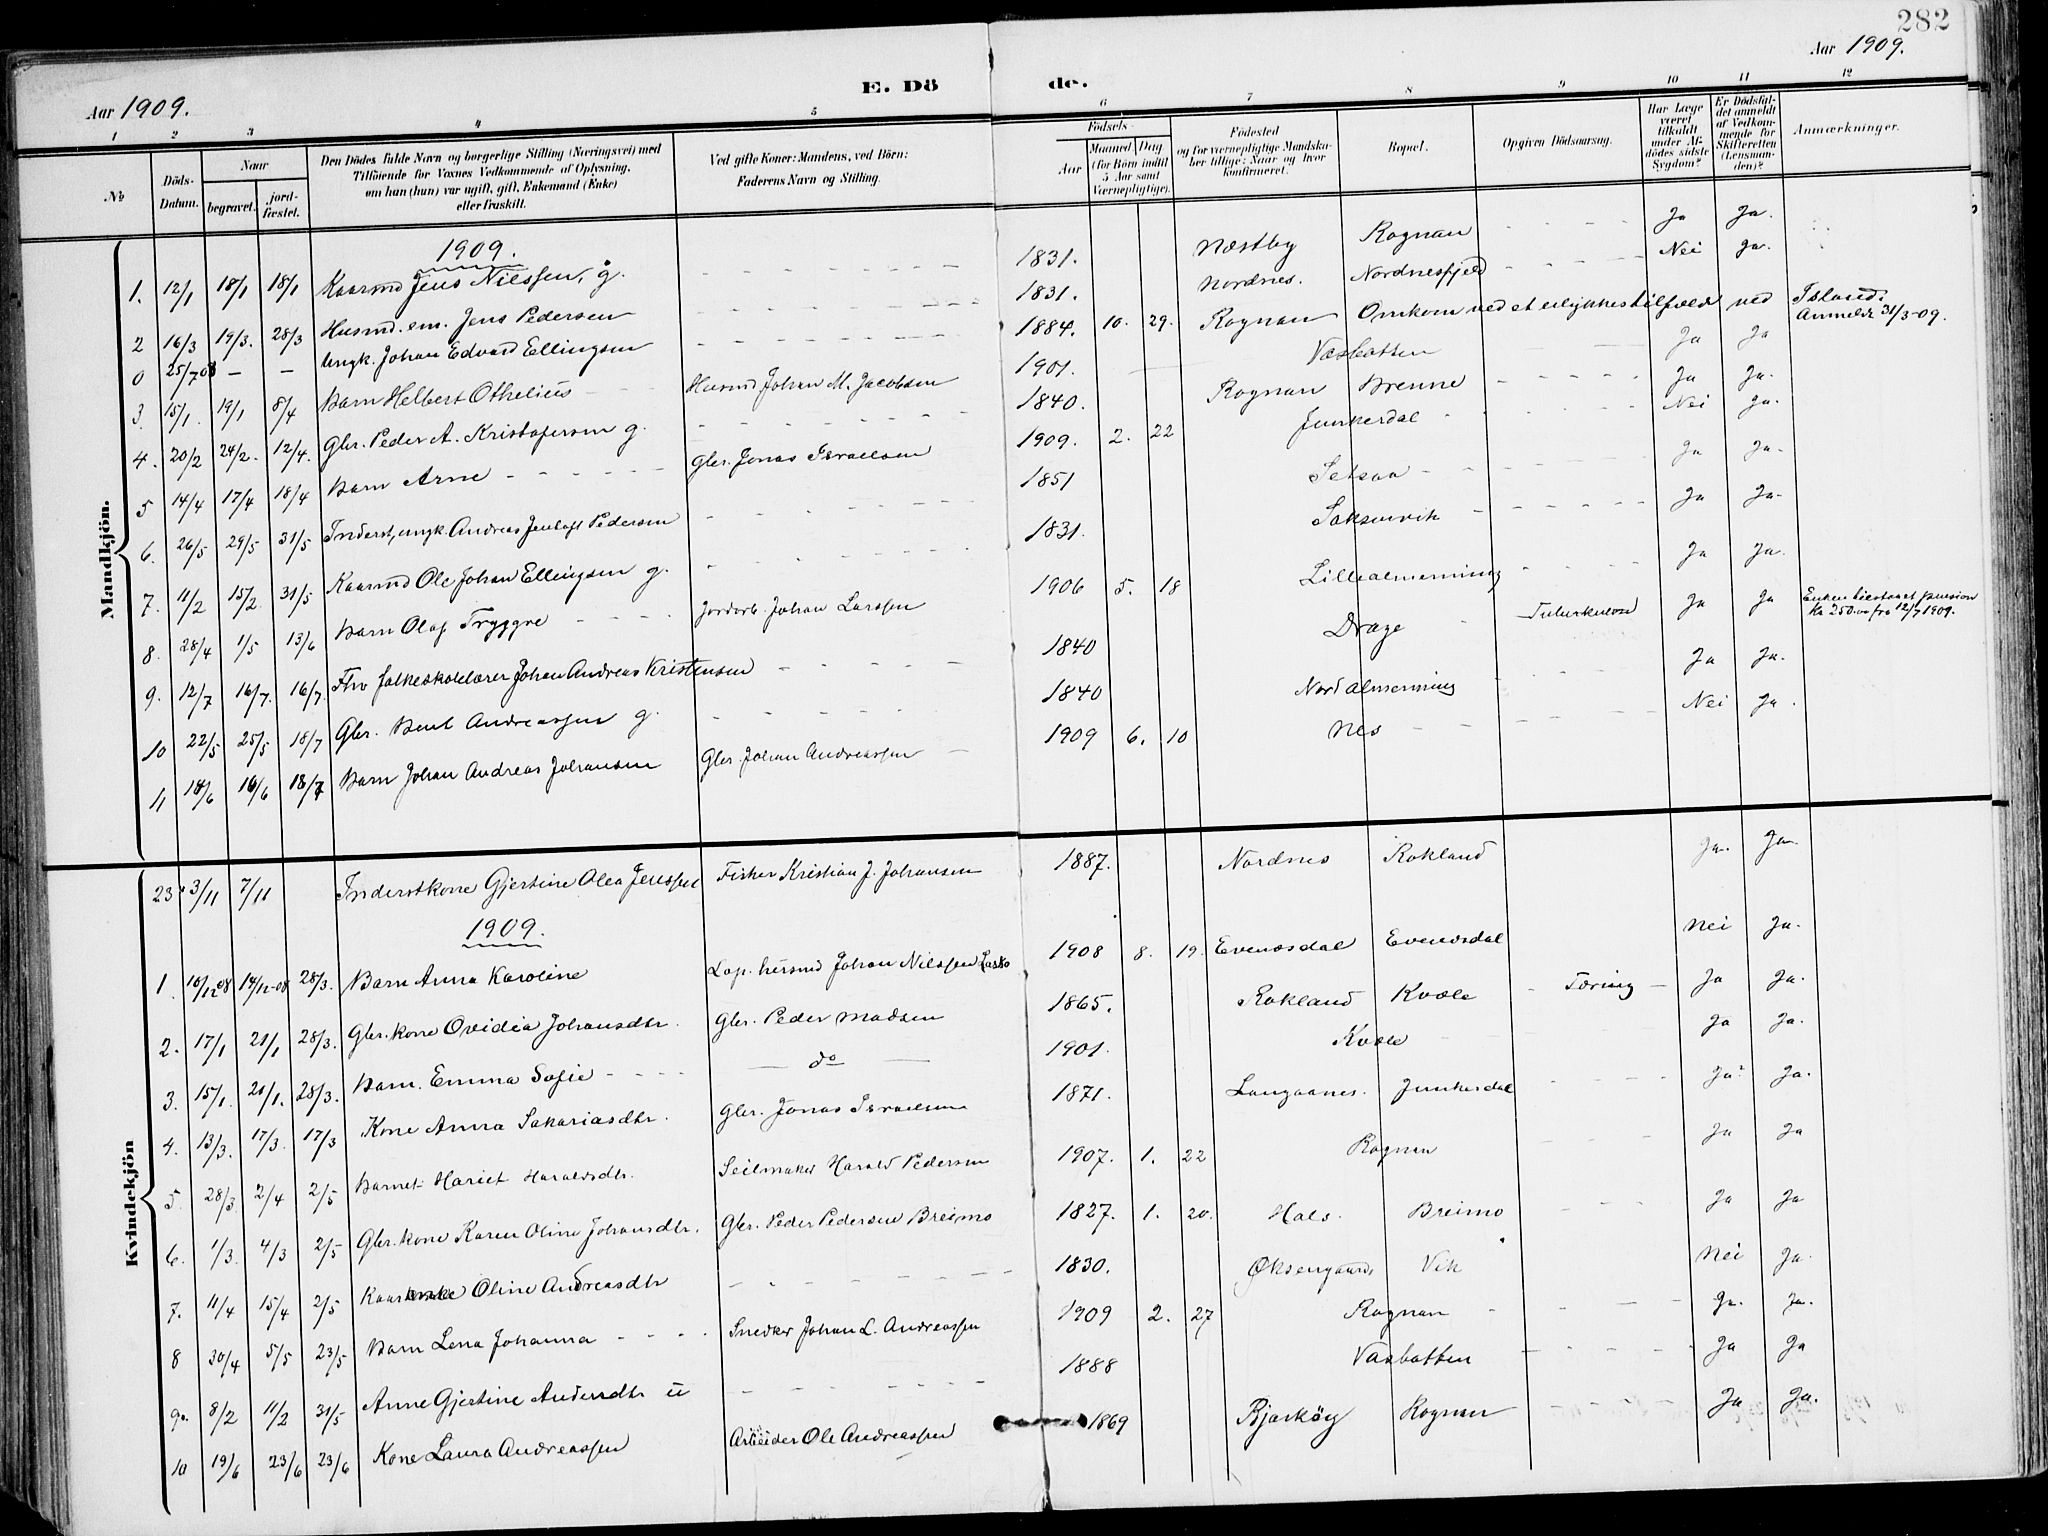 282
Aar 1909.
E. Dö de.
Aar 1909.
1 2 3 4 5 6 7 8 9 10 11 12
No
Döds-Datum.
Naar
begravet.
jordfæstet.
Den Dödes fulde Navn og borgerlige Stilling (Næringsvei) med Tilföiende for Voxnes Vedkommende af Oplysning, om han (hun) var ugift, gift, Enkemand (Enke) eller fraskilt.
Ved gifte Koner: Mandens, ved Börn: Faderens Navn og Stilling.
Födsels-
Aar
Maaned Dag
(for Börn indtil 5 Aar samt Værnepligtige).
Födested og for værnepligtige Mandskaber tillige: Naar og hvor konfirmeret.
Bopæl.
Opgiven Dödsaarsag.
Har Læge været tilkaldt under Afdödes sidste Sygdom?
Er Dödsfaldet anmeldt af Vedkommende for Skifteretten (Lensmanden)?
Anmærkninger.
Mandkjön.
1909.
1. 12/1 18/1 18/1 Kaarmd Jens Nilssen, g. 1831. Næstby Rognan Ja Ja.
2 16/3 19/3. 28/3 Husmd. em. Jens Pedersen 1831. Nordnes. Nordnesfjeld Nei Ja.
0 25/7 08 — — Ungk. Johan Edvard Ellingsen 1884. 10. 29. Rognan Omkom ved et ulykkestilfælde ved Island. Anmeldt 31/3-09.
3. 15/1. 19/1 8/4 Barn Helbert Othelius Husmd Johan M. Jacobsen 1901. Vasbotten Ja Ja
4. 20/2 24/2. 12/4. Gbr. Peder A. Kristofersen g. 1840. Rognan Brenne Ja Ja.
5 14/4 17/4 18/4 Barn Arne Gbr. Jonas Israelsen 1909. 2. 22 Junkerdal Nei Ja.
6. 26/5 29/5 31/5 Inderst, ungk. Andreas Jentoft Pedersen 1851 Setsaa Ja Ja.
7. 11/2 15/2. 31/5 Kaarmd Ole Johan Ellingsen g. 1831. Saksenvik Ja Ja.
8. 28/4 1/5 13/6 Barn Olaf Tryggve Jordarb. Johan Larssen 1906 5. 18 Lillealmenning Ja Ja.
9. 12/7 16/7. 16/7. Fhv folkeskolelærer Johan Andreas Kristensen 1840 Drage Tuberkulose Ja Ja Enken tilstaaet pension Kr 250.00 fra 12/7 1909.
10 22/5 25/5 18/7 Gbr. Bent Andreassen g. 1840 Nordalmenning Ja Ja.
11 14/6 16/6 18/7 Barn Johan Andreas Johansen Gbr. Johan Andreassen 1909 6. 10 Nes Nei Ja.
Kvindekjön
23 3/11 7/11 Inderstkone Gjertine Olea Jenssen Fisker Kristian J. Johansen 1887. Nordnes Rokland Ja. Ja
1909.
1. 10/12 08 14/12-08 28/3. Barn Anna Karoline Lap. husmd Johan Nilssen 1908 8. 19. Evenesdal Evenesdal Nei Ja.
2. 17/1 21/1 28/3. Gbr. kone Ovidia Johansdtr. Gbr. Peder Madsen 1865. Rokland Kvæle Tæring Ja Ja.
3. 15/1. 21/1. 28/3. Barn. Emma Sofie do 1901. Kvæle Ja Ja.
4. 13/3. 17/3. 17/3 Kone Anna Sakariasdtr. Gbr. Jonas Israelsen 1871. Langaanes. Junkerdal Ja? Ja.
5 28/3. 2/4 2/5 Barnet Hariet Haraldsdtr. Seilmaker Harald Pedersen 1907. 1. 22 Rognan Ja Ja
6. 1/3. 4/3 2/5 Gbr. kone Karen Oline Johansdtr. Gbr. Peder Pedersen Breimo 1827. 1. 20. Hals. Breimo Ja Ja
7. 11/4 15/4 2/5 Kaarenke Oline Andreasdtr 1830. Øksengaard Vik Nei Ja.
8 30/4 5/5 23/5 Barn Lena Johanna Snedker Johan L. Andreassen 1909 2. 27 Rognan Ja. Ja.
9. 8/2 11/2 31/5 Anne Gjertine Andersdtr u 1888 Vasbotten Ja Ja
10 19/6 23/6 23/6 Kone Laura Andreassen Arbeider Ole Andreassen 1869 Bjarköy Rognan Ja Ja.